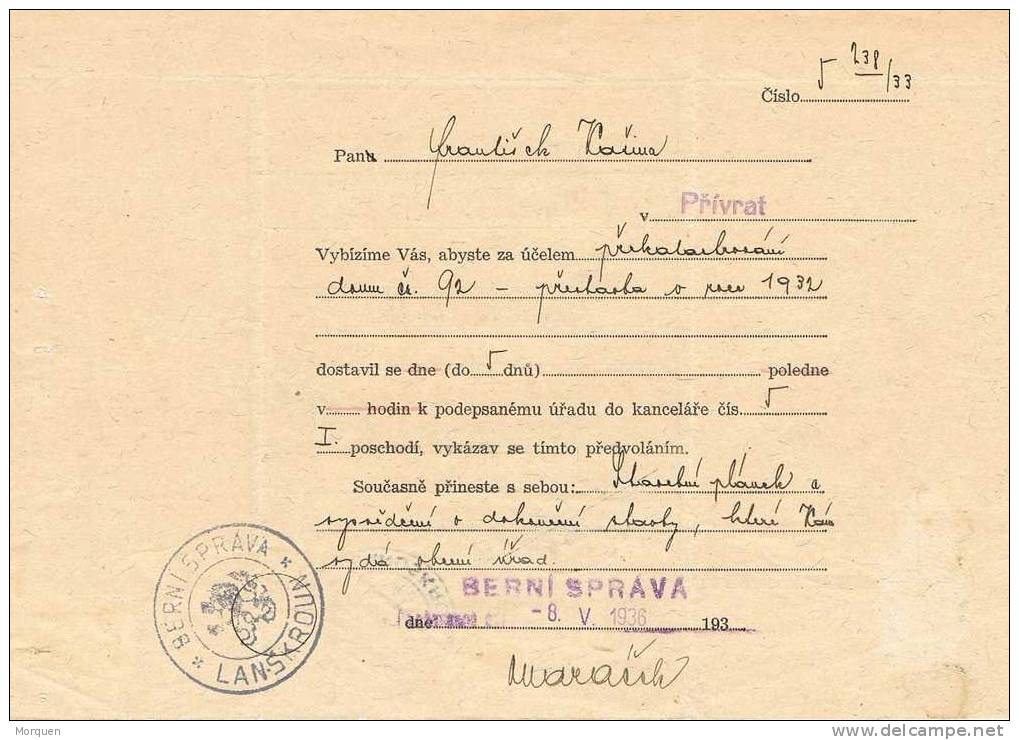 5 238/33
Číslo
Panu František Kašina
v Přívrat
Vybízíme Vás, abyste za účelem překolaudování
domu čs. 92 – přestavba v roce 1932
dostavil se dne (do 5 dnů) poledne
v hodin k podepsanému úřadu do kanceláře čís. 5
I. poschodí, vykázav se tímto předvoláním.
Současně přineste s sebou: Stavební plánek a
vysvědčení o dokončení stavby, které Vám
vydá obecní úřad.
BERNÍ SPRÁVA
dne -8. V. 1936 193
* BERNÍ SPRÁVA * LANŠKROUN
Morquen
delcampe.net